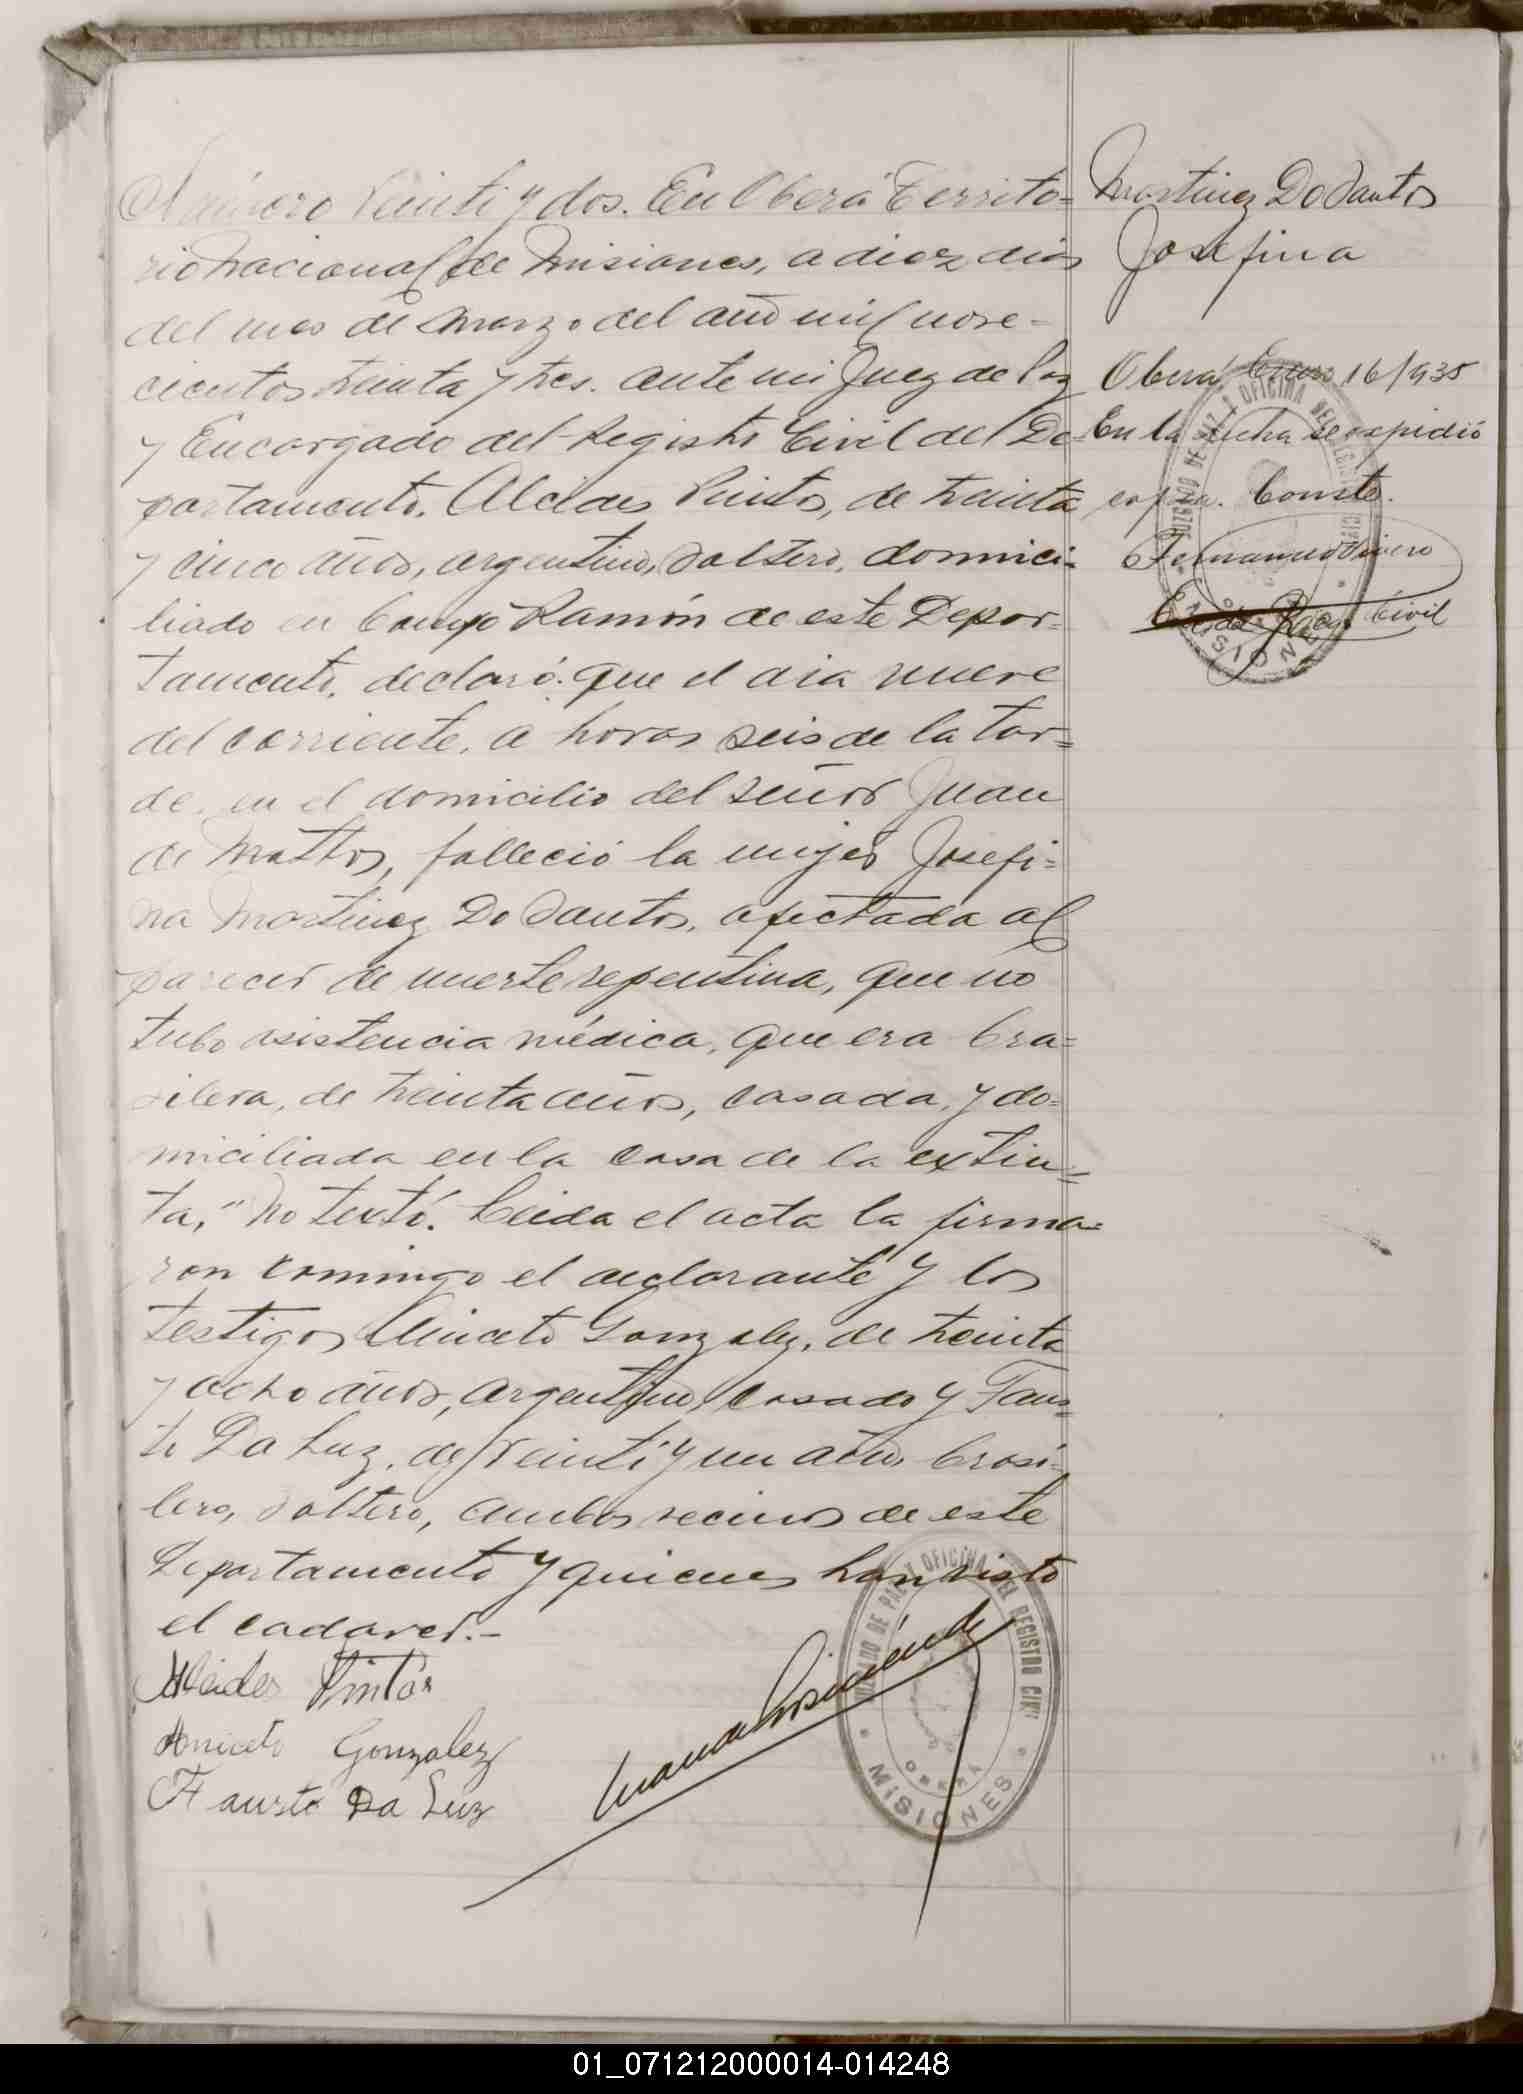 Número Veinti y dos. En Oberá Territo=
rio Nacional de Misiones, a diez dias
del mes de Marzo del año mil nove-
cientos treinta y tres. ante mi Juez de Paz
y Encargado del Registro Civil del De-
partamento. Alcides Pintos, de treinta
y cinco años, argentino, Soltero, domici-
liado en Campo Ramón de este Depar-
tamento, declaró: que el dia nueve
del corriente, a horas seis de la tar=
de, en el domicilio del señor Juan
de Mattos, falleció la mujer Josefi=
na Martinez Do Santos, afectada al
parecer de muerte repentina, que no
tubo asistencia médica, que era bra=
silera, de treinta años, casada, y do=
miciliada en la casa de la extin=
ta, "No testó. Leida el acta la firma=
ron conmigo el declarante y los
testigos Aniceto Gonzalez, de treinta
y ocho años, argentino, casado y Faus=
to Da Luz, de veinti y un años brasi-
lero, Soltero, ambos vecinos de este
Departamento y quienes han visto
el cadaver.-
Alcides Pintos
Aniceto Gonzalez
Fausto Da Luz
JUZGADO DE PAZ Y OFICINA DEL REGISTRO CIVIL
OBERÁ
MISIONES
Martinez Do Santos
Josefina
Oberá, Enero 16/935
En la fecha se expidió
copia. Conste.
Fernando
Civil
JUZGADO DE PAZ Y OFICINA DEL REGISTRO CIVIL
MISIONES
01_071212000014-014248